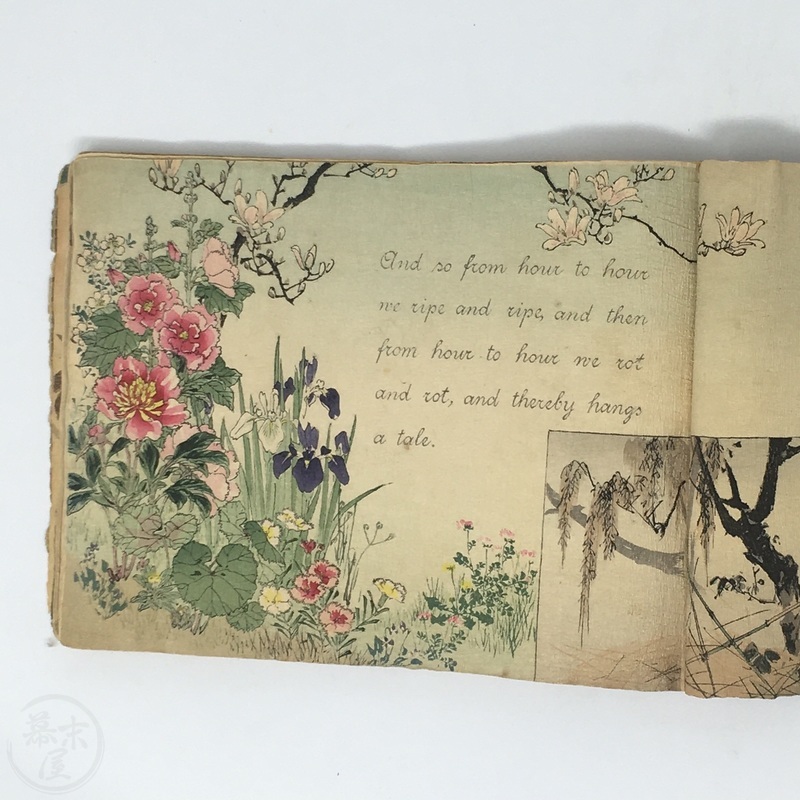 And so from hour to hour
we ripe and ripe, and then
from hour to hour we rot
and rot, and thereby hangs
a tale.
幕末屋